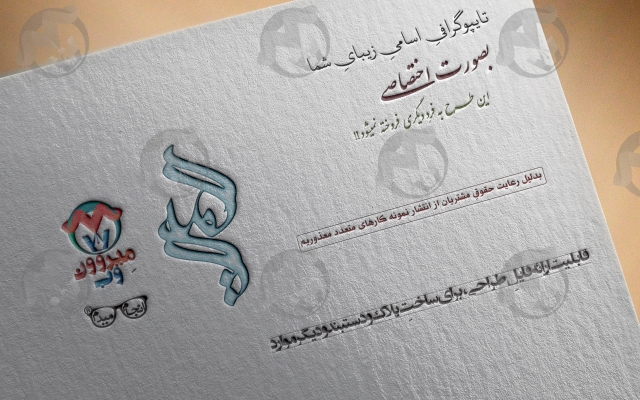 تایپوگرافیِ اسامیِ زیبایِ شما
بصورت اختصاصی
این طرح به فرد دیگری فروخته نمیشود!!
بدلیل رعایت حقوقِ مشتریان از انتشار نمونه کارهای متعدد معذوریم
قابلیت ارائه فایلِ طراحی، برای ساختِ پلاک و دستبند و دیگر موارد
میروون
وب